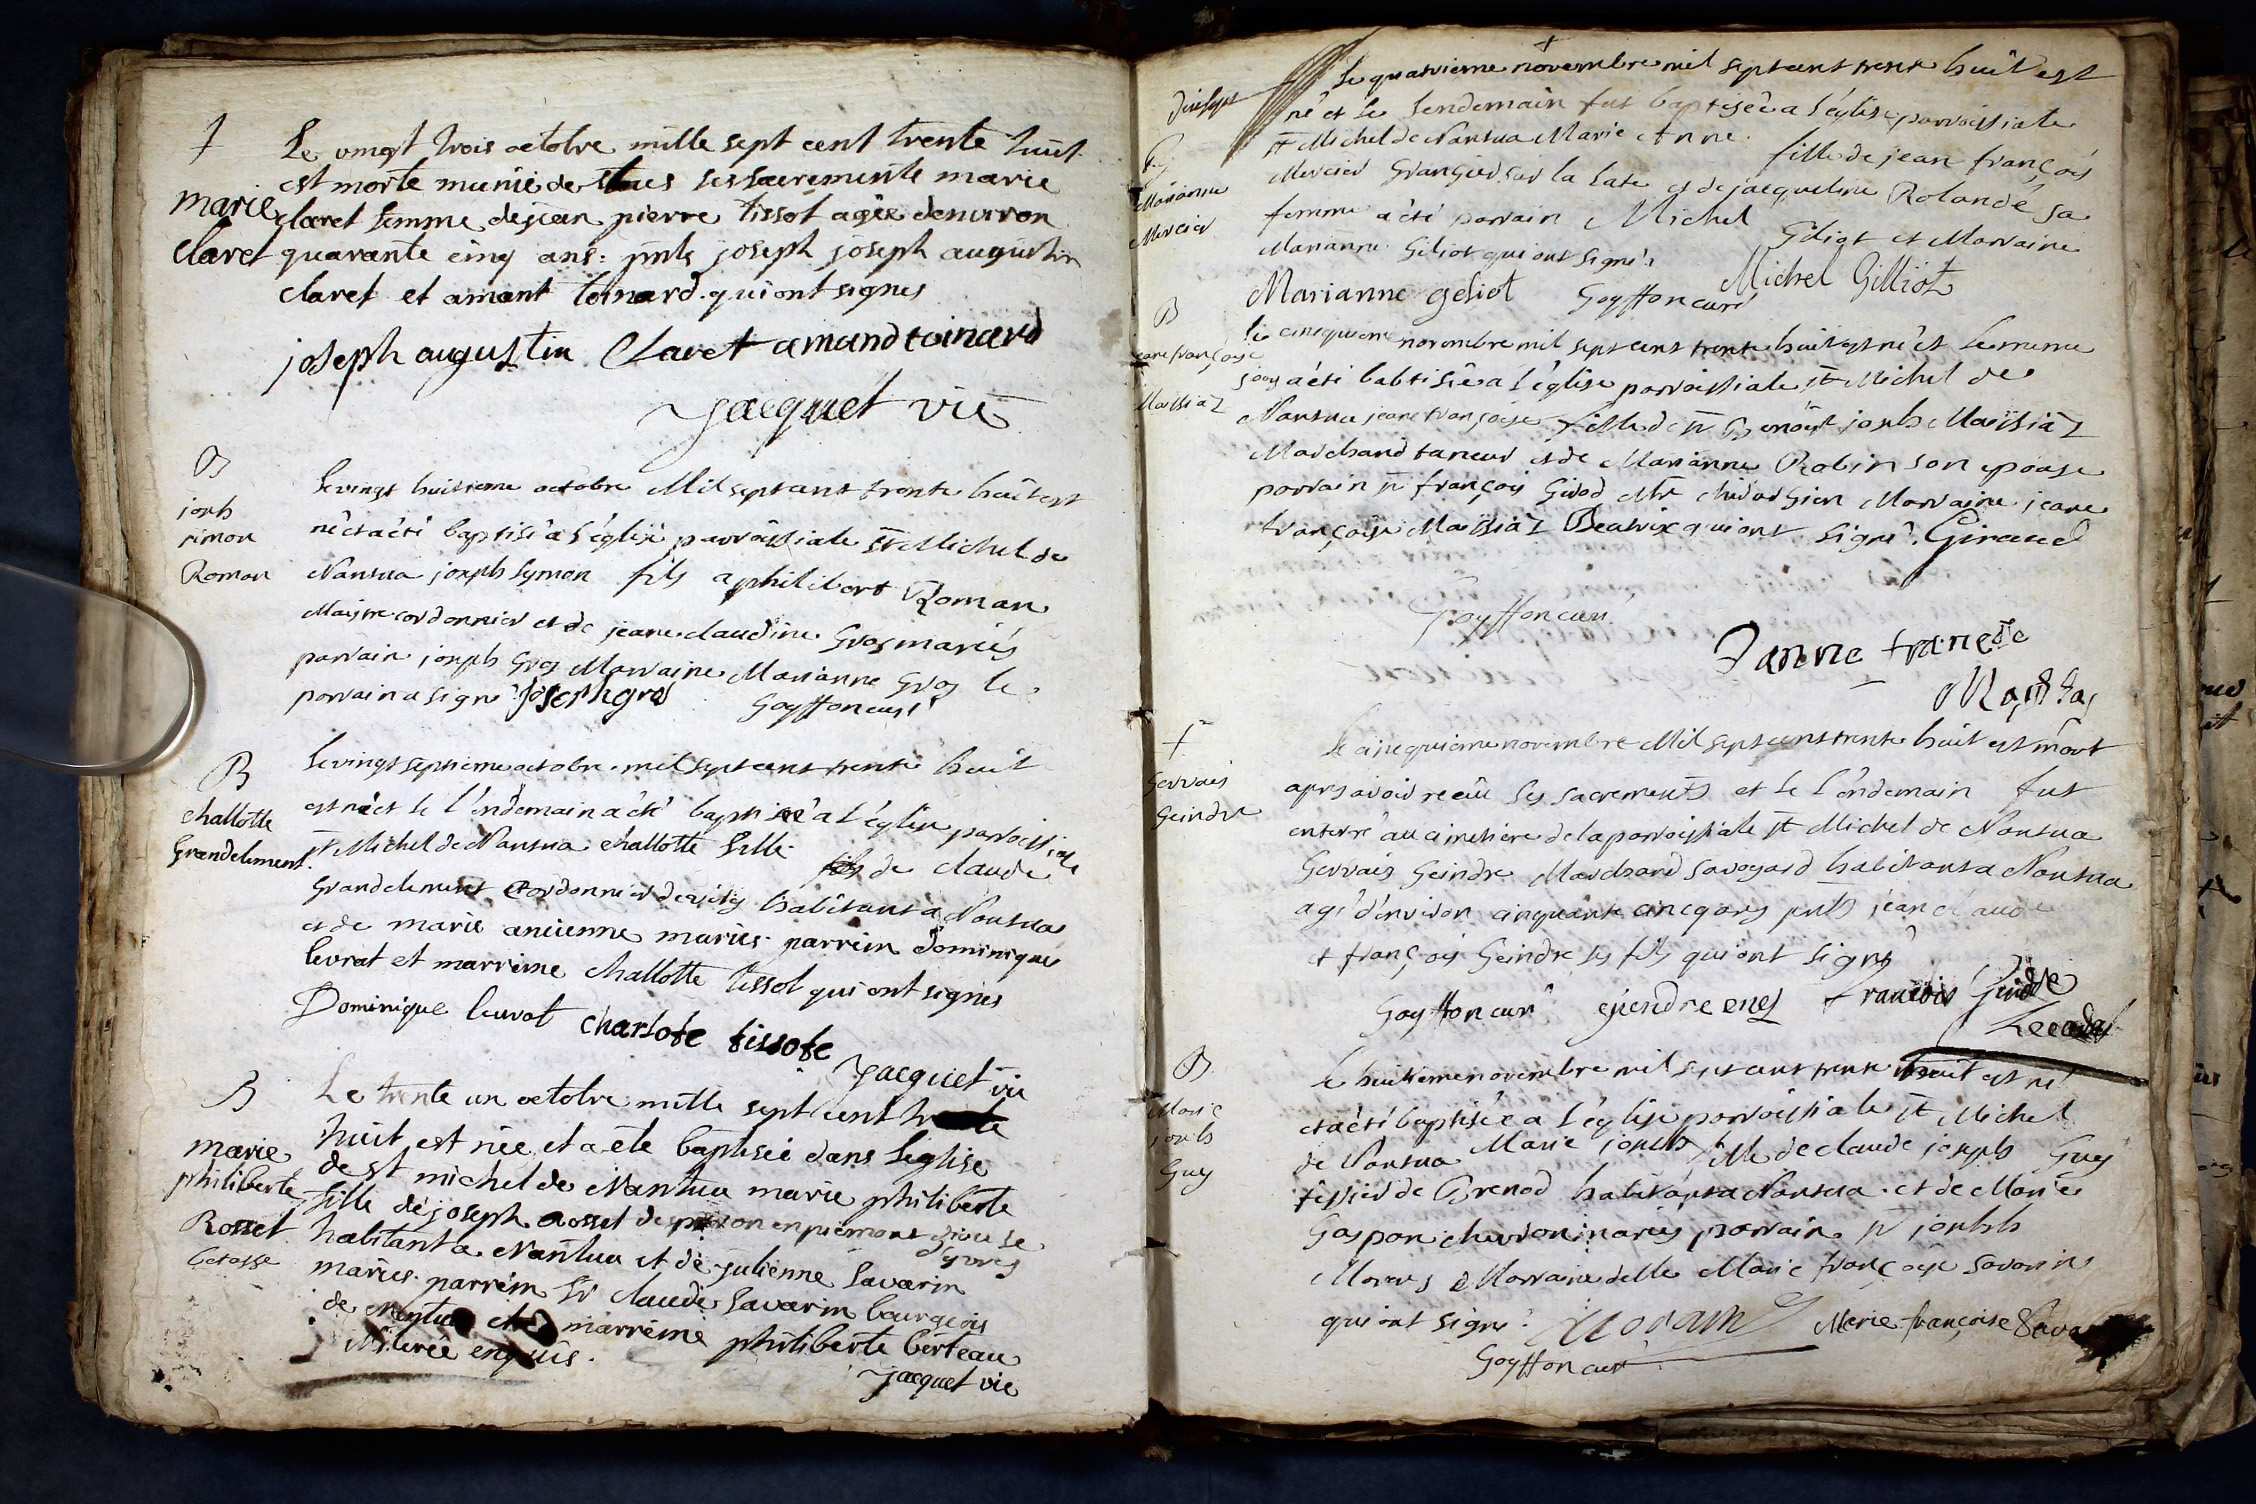 †
Le vingt trois octobre mille sept cent trente huit
est morte munie de tous ses sacrements marie
marie claret femme de jean pierre tissot agée denviron
claret quarante cinq ans. pnts joseph joseph augustin
claret et amant toinard. qui ont signes
joseph augustin Claret amand toinard
Jacquet vic
B
joph
simon
Roman
le vingt huitieme octobre Mil sept cent trente huit est
né et a été baptisé a l'église parroissiale st Michel de
Nantua joseph symon fils a philibert Roman
Maistre cordonnier et de jeane claudine Gros mariés
parrain joseph Gros Marraine Marianne Gros le
parrain a signé Joseph gros Goyffon curé
B
challotte
Grandclement
le vingt septieme octobre mil sept cent trente huit
est né et le l'endemain a été baptisée a l'église parroissiale
st Michel de Nantua challotte fille de claude
Grandclement cordonnier habitant a Nantua
et de marie ancienne mariés. parrein dominique
levrat et marreine challotte tissot qui ont signés
Dominique levrat charlote tissote
Jacquet vic
B
marie
philiberte
Rosset
Le trente un octobre mille sept cent trente
huit est née et a ete baptisée dans leglise
de st michel de Nantua marie philiberte
fille de joseph Rosset en piemont
habitant a Nantua et de julienne savarin
mariés. parrein sr claude savarin bourgeois
de Nantua et marreine philiberte berteau
Jacquet vic
Le quatrieme novembre mil sept cent trente huit est
né et le lendemain fut baptisée a l'église parroissiale
st Michel de Nantua Marie Anne fille de jean françois
Marianne
Mercier
Mercier Granger sur la et de jacqueline Rolande sa
femme a été parrain Michel Giliot et Marraine
Marianne Giliot qui ont signé.
Marianne geliot Goyffon curé Michel Gilliot
B
jeane françoise
Maissiaz
le cinquieme novembre mil sept cent trente huit est né et le meme
jour a été babtisée a l'église parroissiale st Michel de
Nantua jeane françoise fille de sr Benoit joseph Maissiaz
Marchand taneur et de Marianne Robin son epouse
parrain sr françois Girod Mre chirurgien Marraine jeane
françoise Maissiaz Beatrix qui ont signé. Giraud
Goyffon curé
Janne
†
Gervais
Geindre
le cinquieme novembre Mil sept cent trente huit est mort
apres avoir reçu ses sacrements et le l'endemain fut
enterré au cimetiere de la parroissiale st Michel de Nantua
Gervais Geindre Marchand savoyard habitant a Nantua
agé d'environ cinquante cinq ans pnts jean claude
et françois Geindre ses fils qui ont signé
Goyffon curé françois
B
Marie
joseph
Guy
le huitieme novembre mil sept cent trente huit est né
et a été baptisée a l'église parroissiale st Michel
de Nantua Marie joseph fille de claude joseph Guy
tissier de Brenod habitant a Nantua et de Marie
Gaspon mariés parrain sr joseph
Moras & Marraine delle Marie françoise savarin
qui ont signé. Marie françoise
Goyffon curé